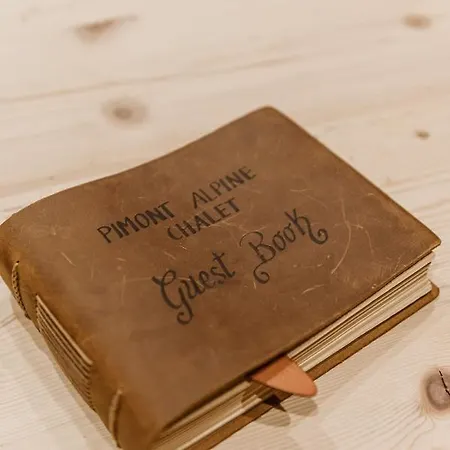 PIMONT ALPINE
CHALET
Guest Book